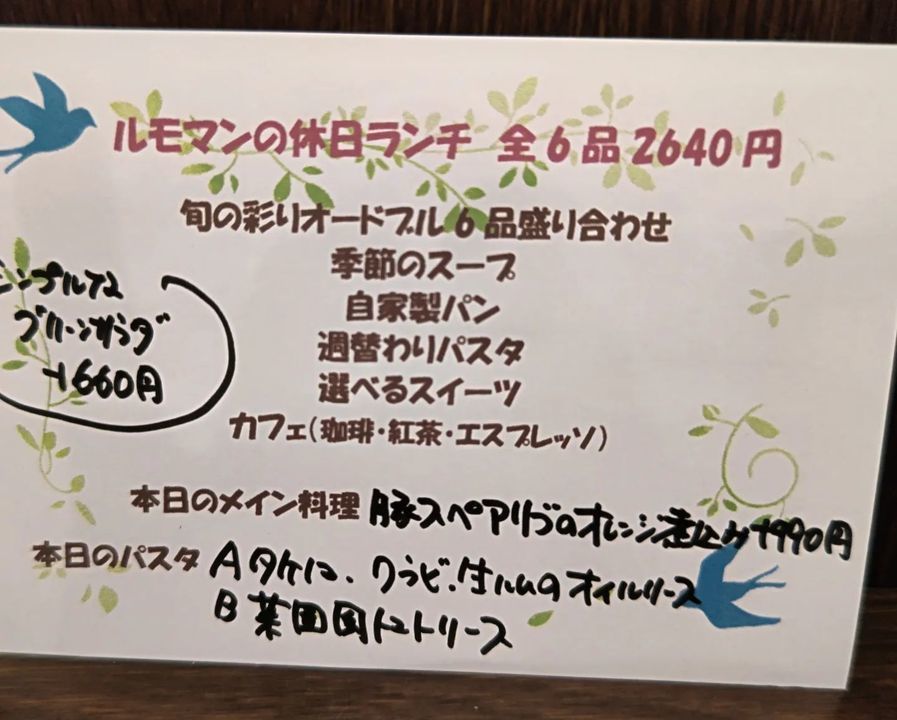 ルモマンの休日ランチ 全6品2640円
旬の彩りオードブル6品盛り合わせ
季節のスープ
自家製パン
週替わりパスタ
選べるスイーツ
カフェ(珈琲・紅茶・エスプレッソ)
シンプルな
グリーンサラダ
+660円
本日のメイン料理 豚スペアリブのオレンジ煮込み+990円
本日のパスタ Aタケノコ、ワラビ、生ハムのオイルソース
B 菜園風トマトソース